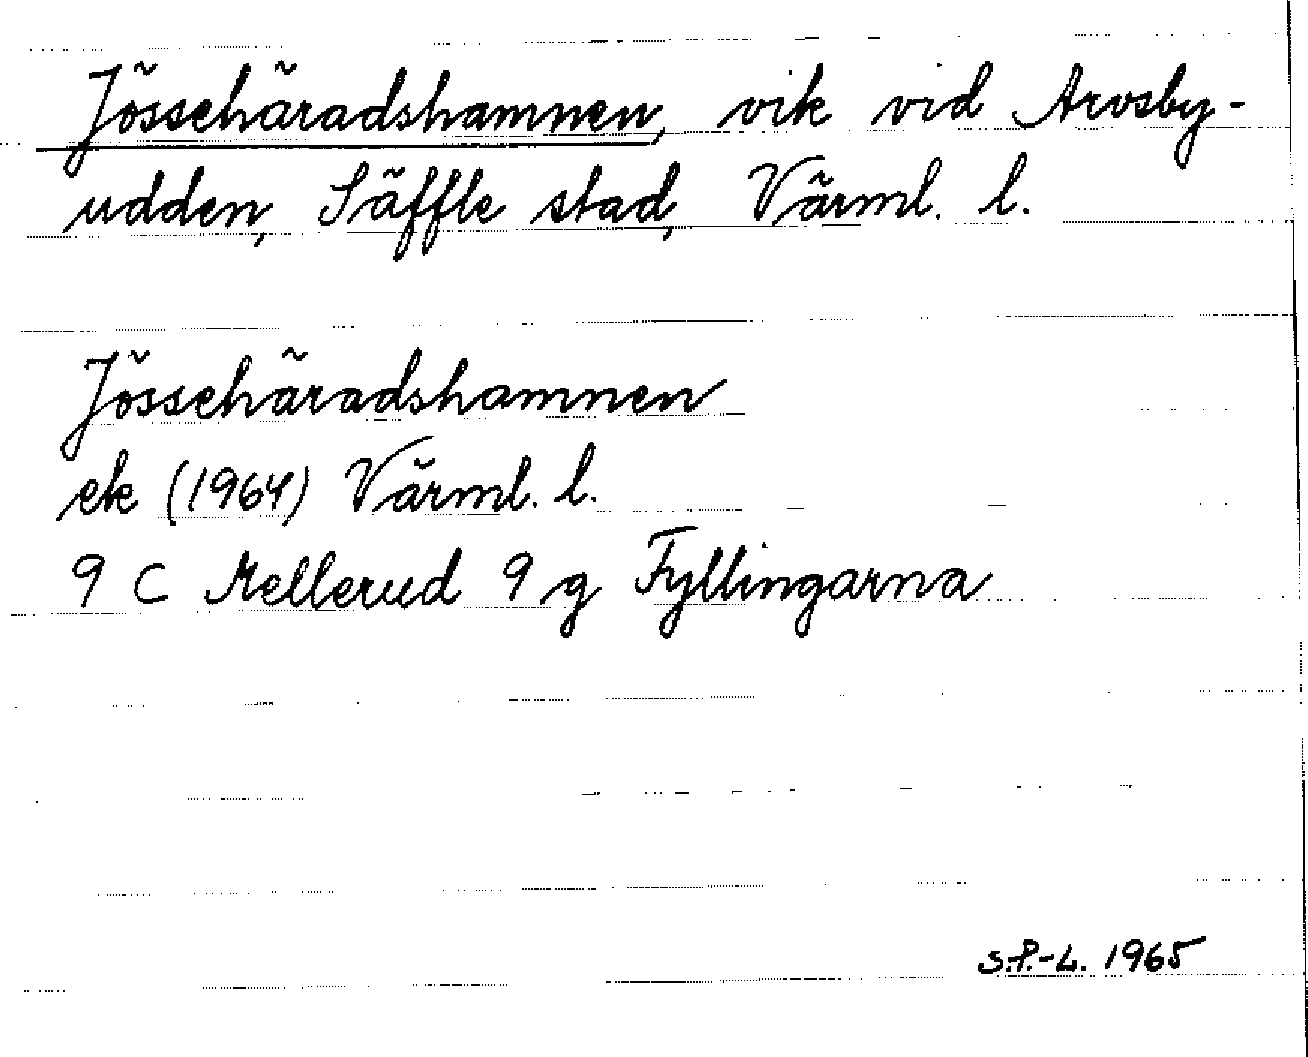 Jössehäradshamnen, vik vid Arvsby-
udden, Säffle stad, Värml. l.
Jössehäradshamnen
ek (1964) Värml. l.
9 C Mellerud 9 g Fyllingarna
S.P.-L. 1965